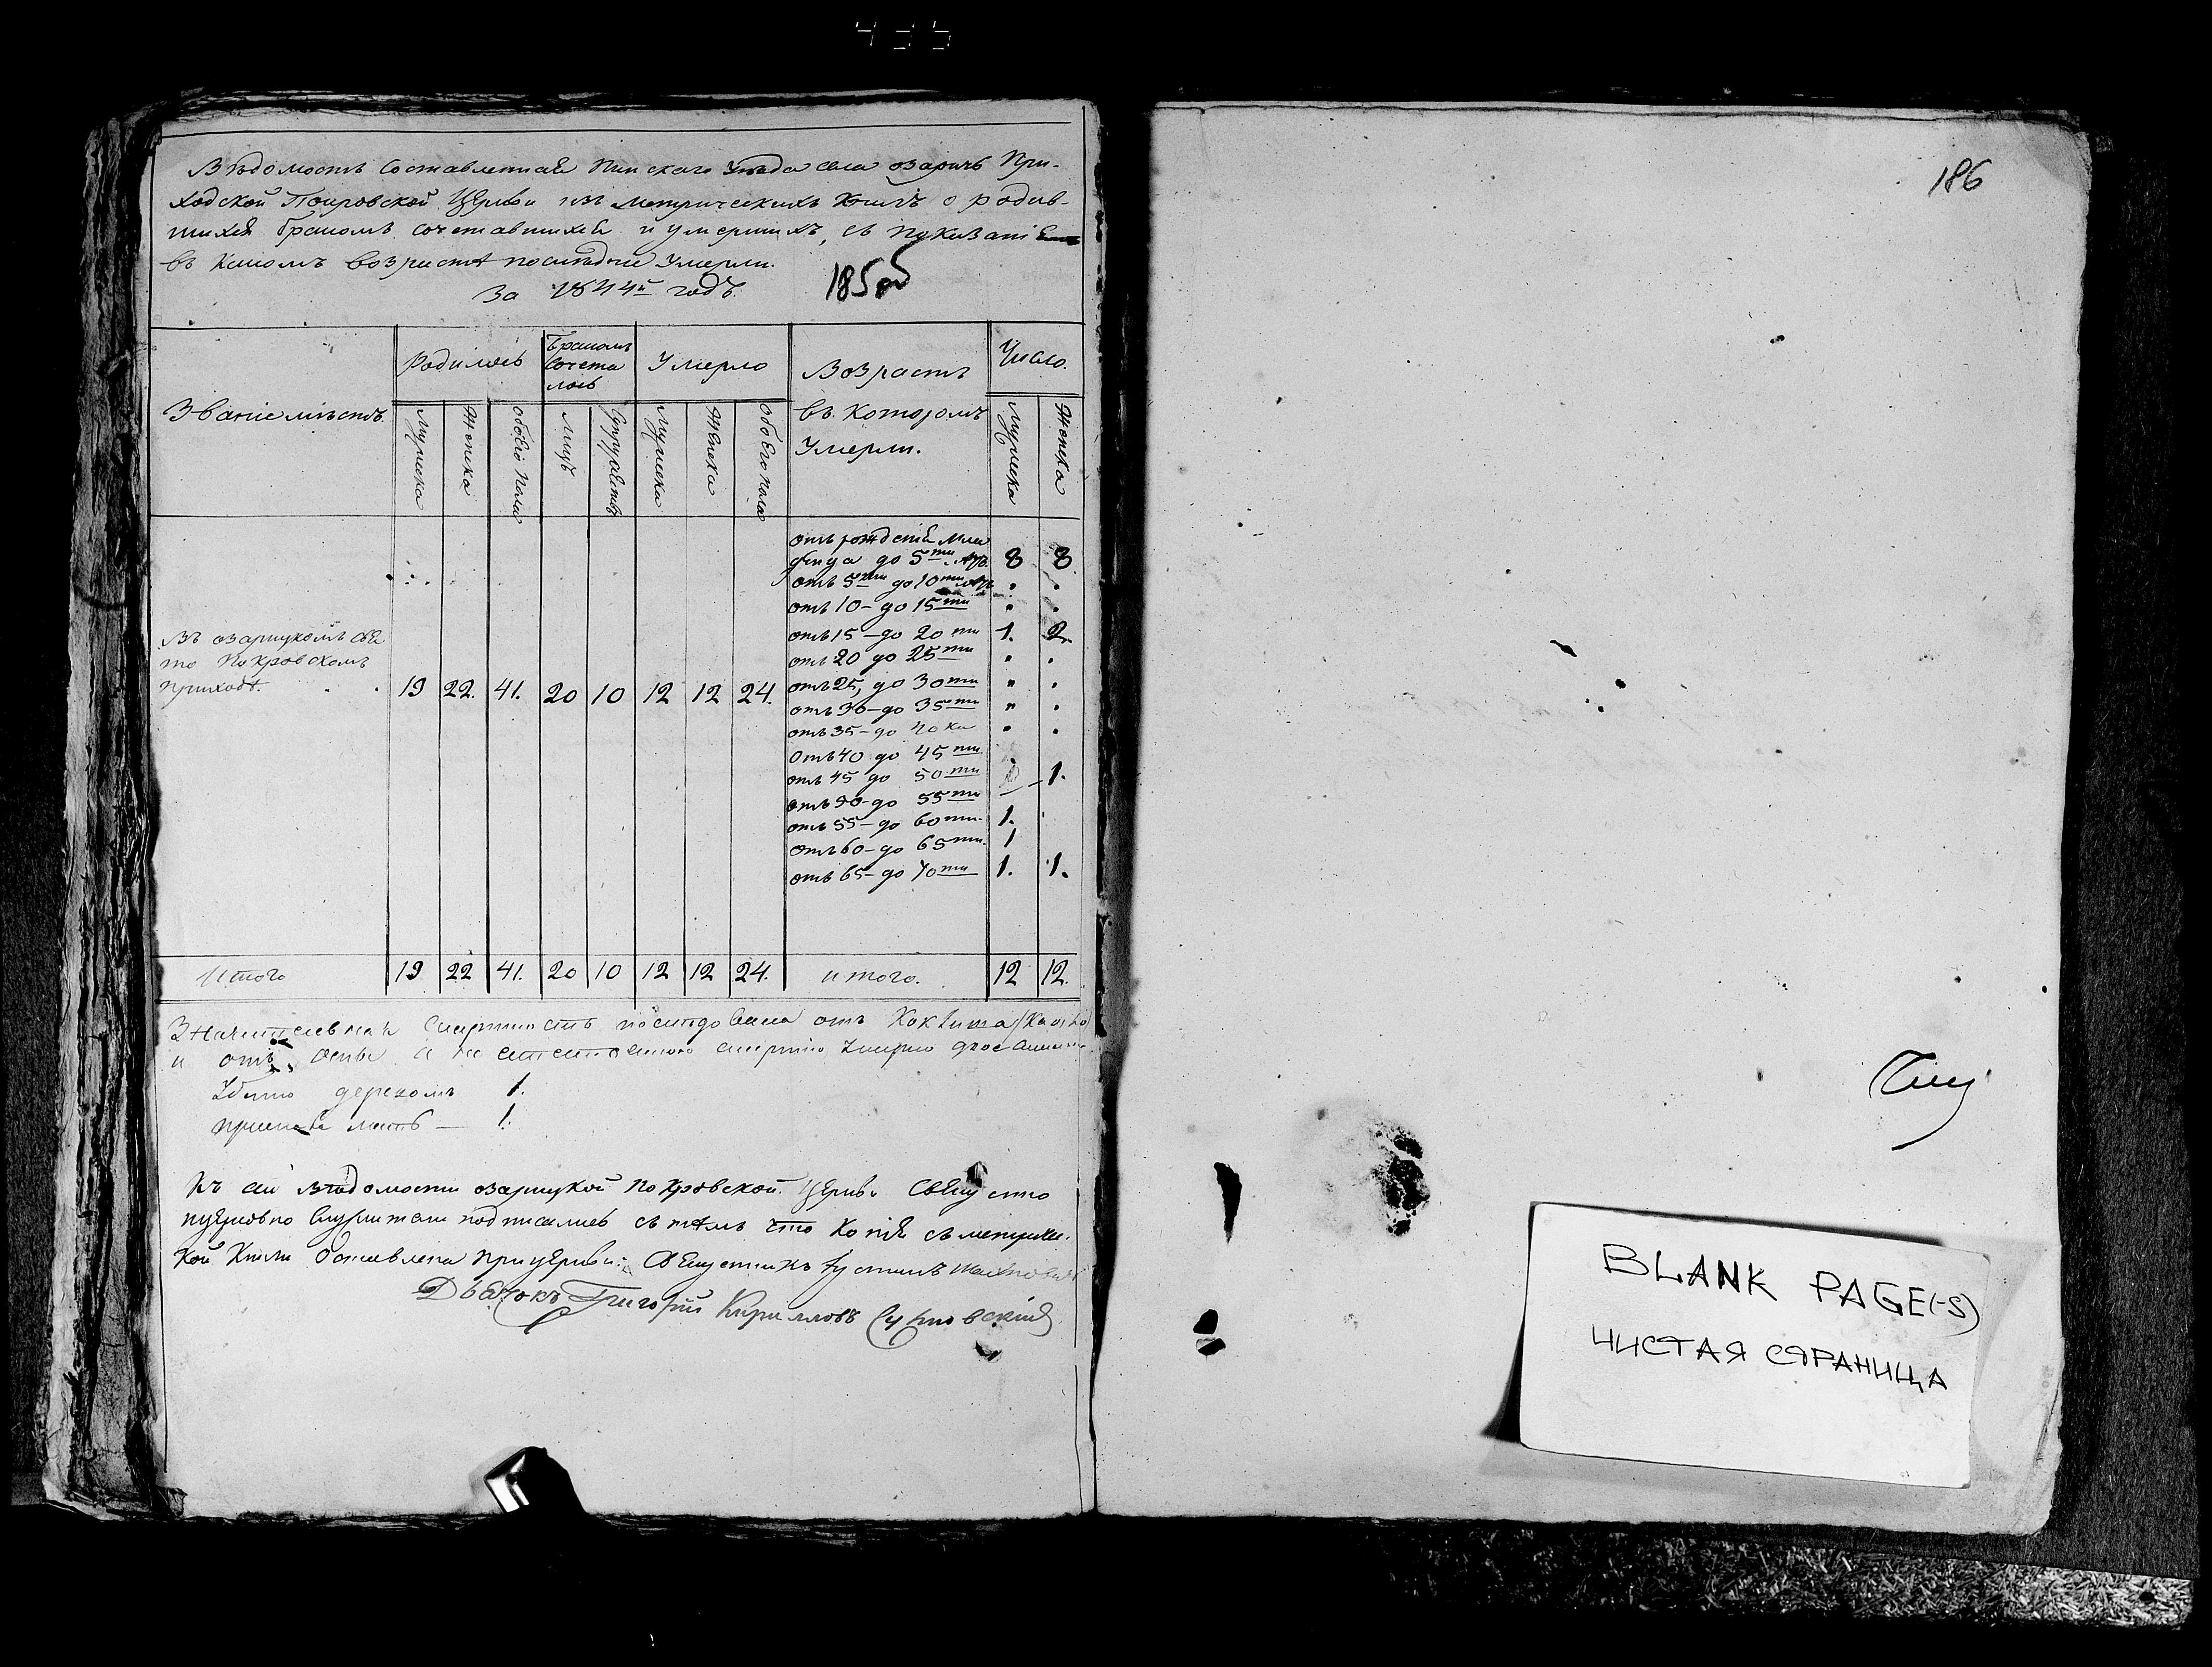 435
Вѣдомость Составленная Пинскаго Уѣзда села озаричъ При-
ходской Покровской Церкви изъ метрическихъ Книгъ о родив-
шихся бракомъ сочетавшихся и умершихъ, съ показаніемъ
въ какомъ возрастѣ послѣдніе Умерли.
За 1844й годъ.
185об
Званіе мѣстъ.
Родилось
Бракомъ
Сочета
лось
Умерло
Возрастъ
въ которомъ
Умерли.
Число.
Мужеска Женска обоего пола лицъ Супружествъ Мужеска Женска обоего пола Мужеска Женска
отъ рожденія Мла
денца до 5ти лѣтъ. 8 8
отъ 5ти до 10ти лѣтъ " "
отъ 10 - до 15ти " "
отъ 15 - до 20ти 1. 2.
отъ 20 до 25ти " "
отъ 25, до 30ти " "
отъ 30 - до 35ти " "
отъ 35 - до 40ка " "
отъ 40 до 45ти
отъ 45 до 50ти 1.
отъ 50 - до 55ти
отъ 55 - до 60ти. 1.
отъ 60 - до 65ти. 1
отъ 65 - до 70ти 1. 1.
Въ озарицкомъ свя
то Покровскомъ
приходѣ. 19 22. 41. 20 10 12 12 24.
Итого 19 22 41. 20 10 12 12 24. итого. 12 12.
смертность послѣдовала отъ Коклюша
и отъ Оспы а не естественною смертію Умерло двое
Убито деревомъ 1.
1.
Къ сей вѣдомости озарицкой Покровской Церкви Священно
церковно служители подписались съ тѣмъ что Копія съ метриче.
кой Книги Оставлена при церкви. Священникъ
Дьячокъ Григорій Кирилловъ
186
BLANK PAGE(-S)
ЧИСТАЯ СТРАНИЦА